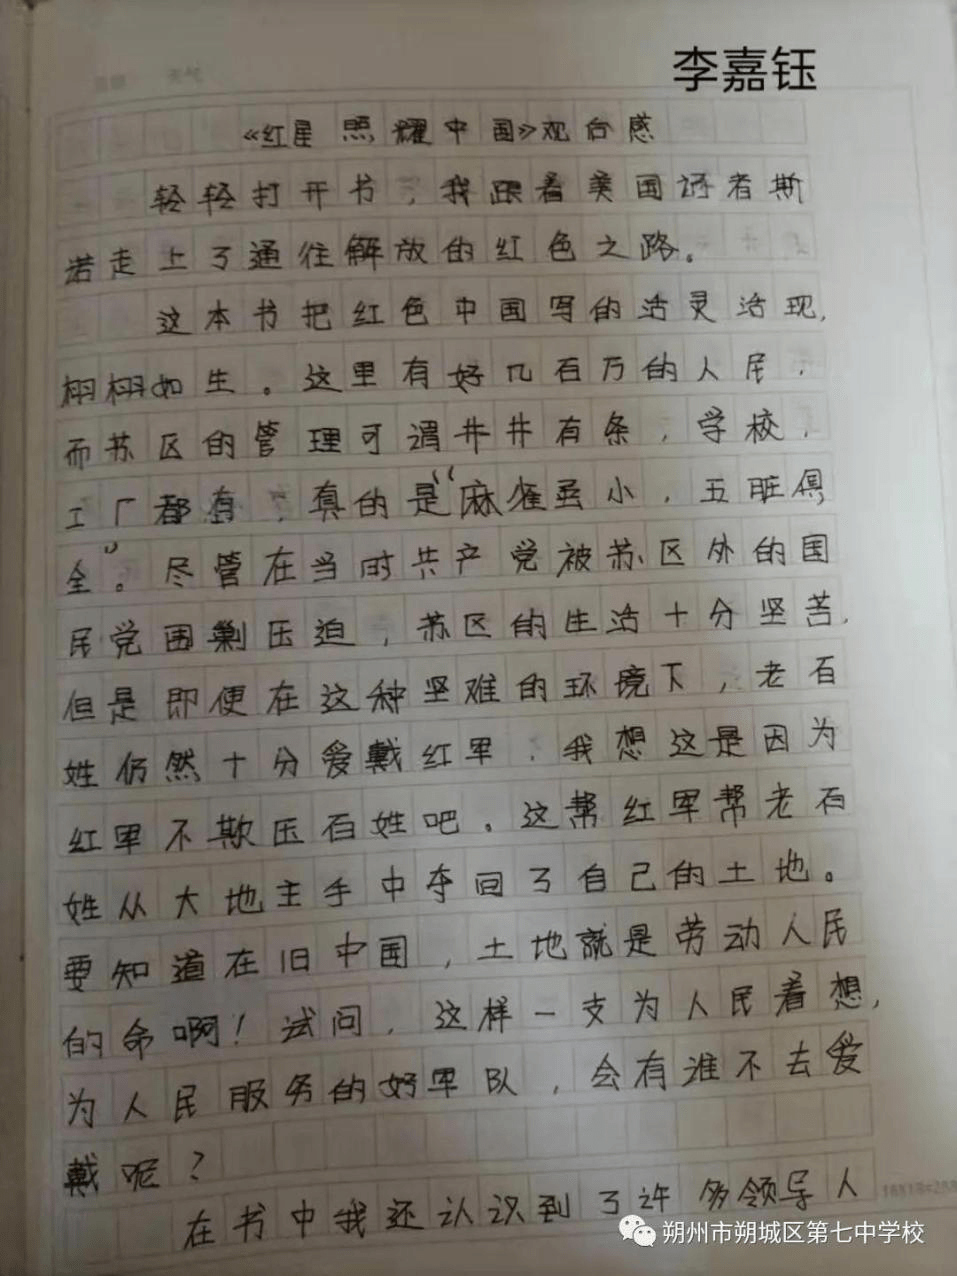 李嘉钰
《红星照耀中国》观后感
轻轻打开书，我跟着美国记者斯
诺走上了通往解放的红色之路。
这本书把红色中国写的活灵活现，
栩栩如生。这里有好几百万的人民，
而苏区的管理可谓井井有条，学校，
工厂都有，真的是“麻雀虽小，五脏俱
全”。尽管在当时共产党被苏区外的国
民党围剿压迫，苏区的生活十分坚苦，
但是即便在这种坚难的环境下，老百
姓仍然十分爱戴红军，我想这是因为
红军不欺压百姓吧。这帮红军帮老百
姓从大地主手中夺回了自己的土地。
要知道在旧中国，土地就是劳动人民
的命啊！试问，这样一支为人民着想，
为人民服务的好军队，会有谁不去爱
戴呢？
在书中我还认识到了许多领导人
朔州市朔城区第七中学校